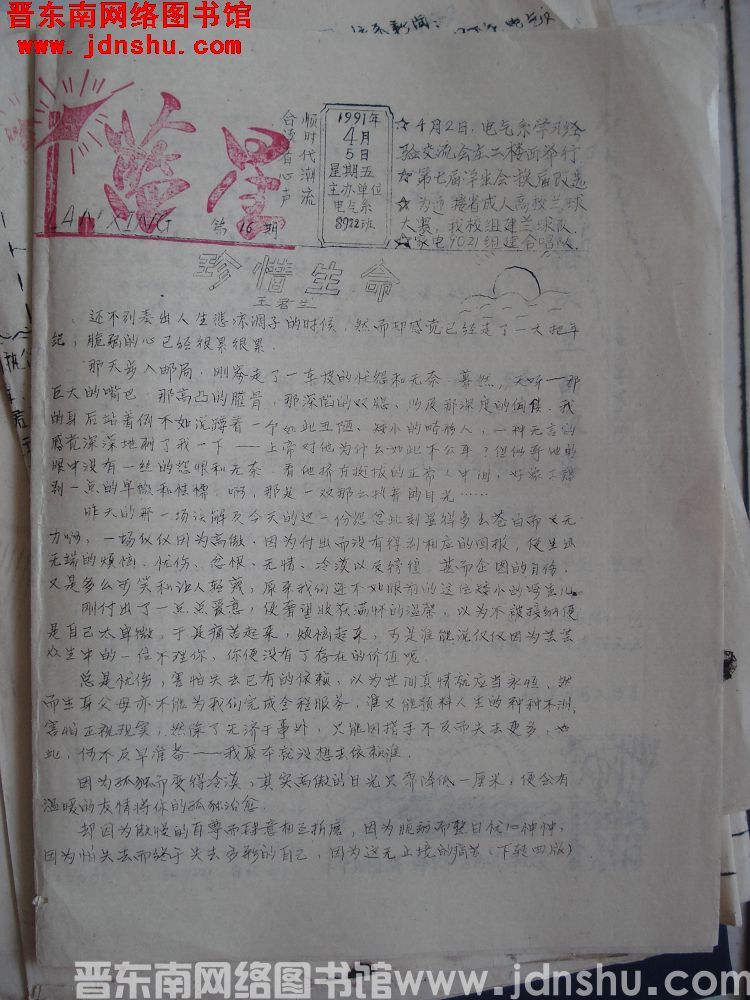 晋东南网络图书馆
www.jdnshu.com
蓝星
LAN XING
第16期
合该看心声
顺时代潮流
1991年
4月
5日
星期五
主办单位
电气系
8922班
☆4月2日,电气系学习经
验交流会在二楼面举行
☆第七届学生会换届改选
☆为迎接省成人高校兰球
大赛,我校组建兰球队.
☆家电9021组建合唱队.
珍惜生命
王君生
还不到奏出人生悲凉调子的时候,然而却感觉已经走了一大把年
纪;脆弱的心已经很累很累.
那天步入邮局,刚寄走了一车皮的忧怨和无奈.蓦然,
巨大的嘴巴,那高凸的腮骨,那深陷的双腮,以及那深度的佝偻.我
的身后站着倒不如说蹲着一个如此丑陋、矮小的畸形人,一种无言的
感觉深深地刺了我一下——上帝对他为什么如此不公平?但似乎他的
眼中没有一丝的怨恨和无奈.看他挤在挺拔的正常人中间,好象
别一点的卑微和怯懦.啊,那是一双那么执著的目光……
昨天的那一场误解及今天的这一份怨忿此刻显得多么苍白而又无
力啊,一场仅仅因为高傲、因为付出而没有得到相应的回报,便生出
无端的烦恼、忧伤、忿恨、无情、冷漠以及
又是多么可笑和让人轻蔑;原来我们还不如眼前的这位矮小的
刚付出了一点点爱意,便奢望收获满怀的温馨,以为不被接纳便
是自己太卑微,于是痛苦起来,烦恼起来,可是谁能说仅仅因为芸芸
众生中的一位不理你,你便没有了存在的价值呢.
总是忧伤,害怕失去已有的依赖,以为世间真情就应当永恒,然
而生身父母亦不能为我们完成全程服务,谁又能预料人生的种种不测,
害怕正视现实,然除了无济于事外,只能因措手不及而失去更多,如
此,何不及早准备——我原本就没想去依赖谁.
因为孤独而变得冷漠,其实高傲的目光只需降低一厘米,便会有
温暖的友情将你的孤独治愈.
却因为傲慢的自尊而肆意相互折磨,因为脆弱而整日忧心忡忡,
因为怕失去而终于失去多彩的自己,因为这无止境的痛苦(下转四版)
晋东南网络图书馆 www.jdnshu.com